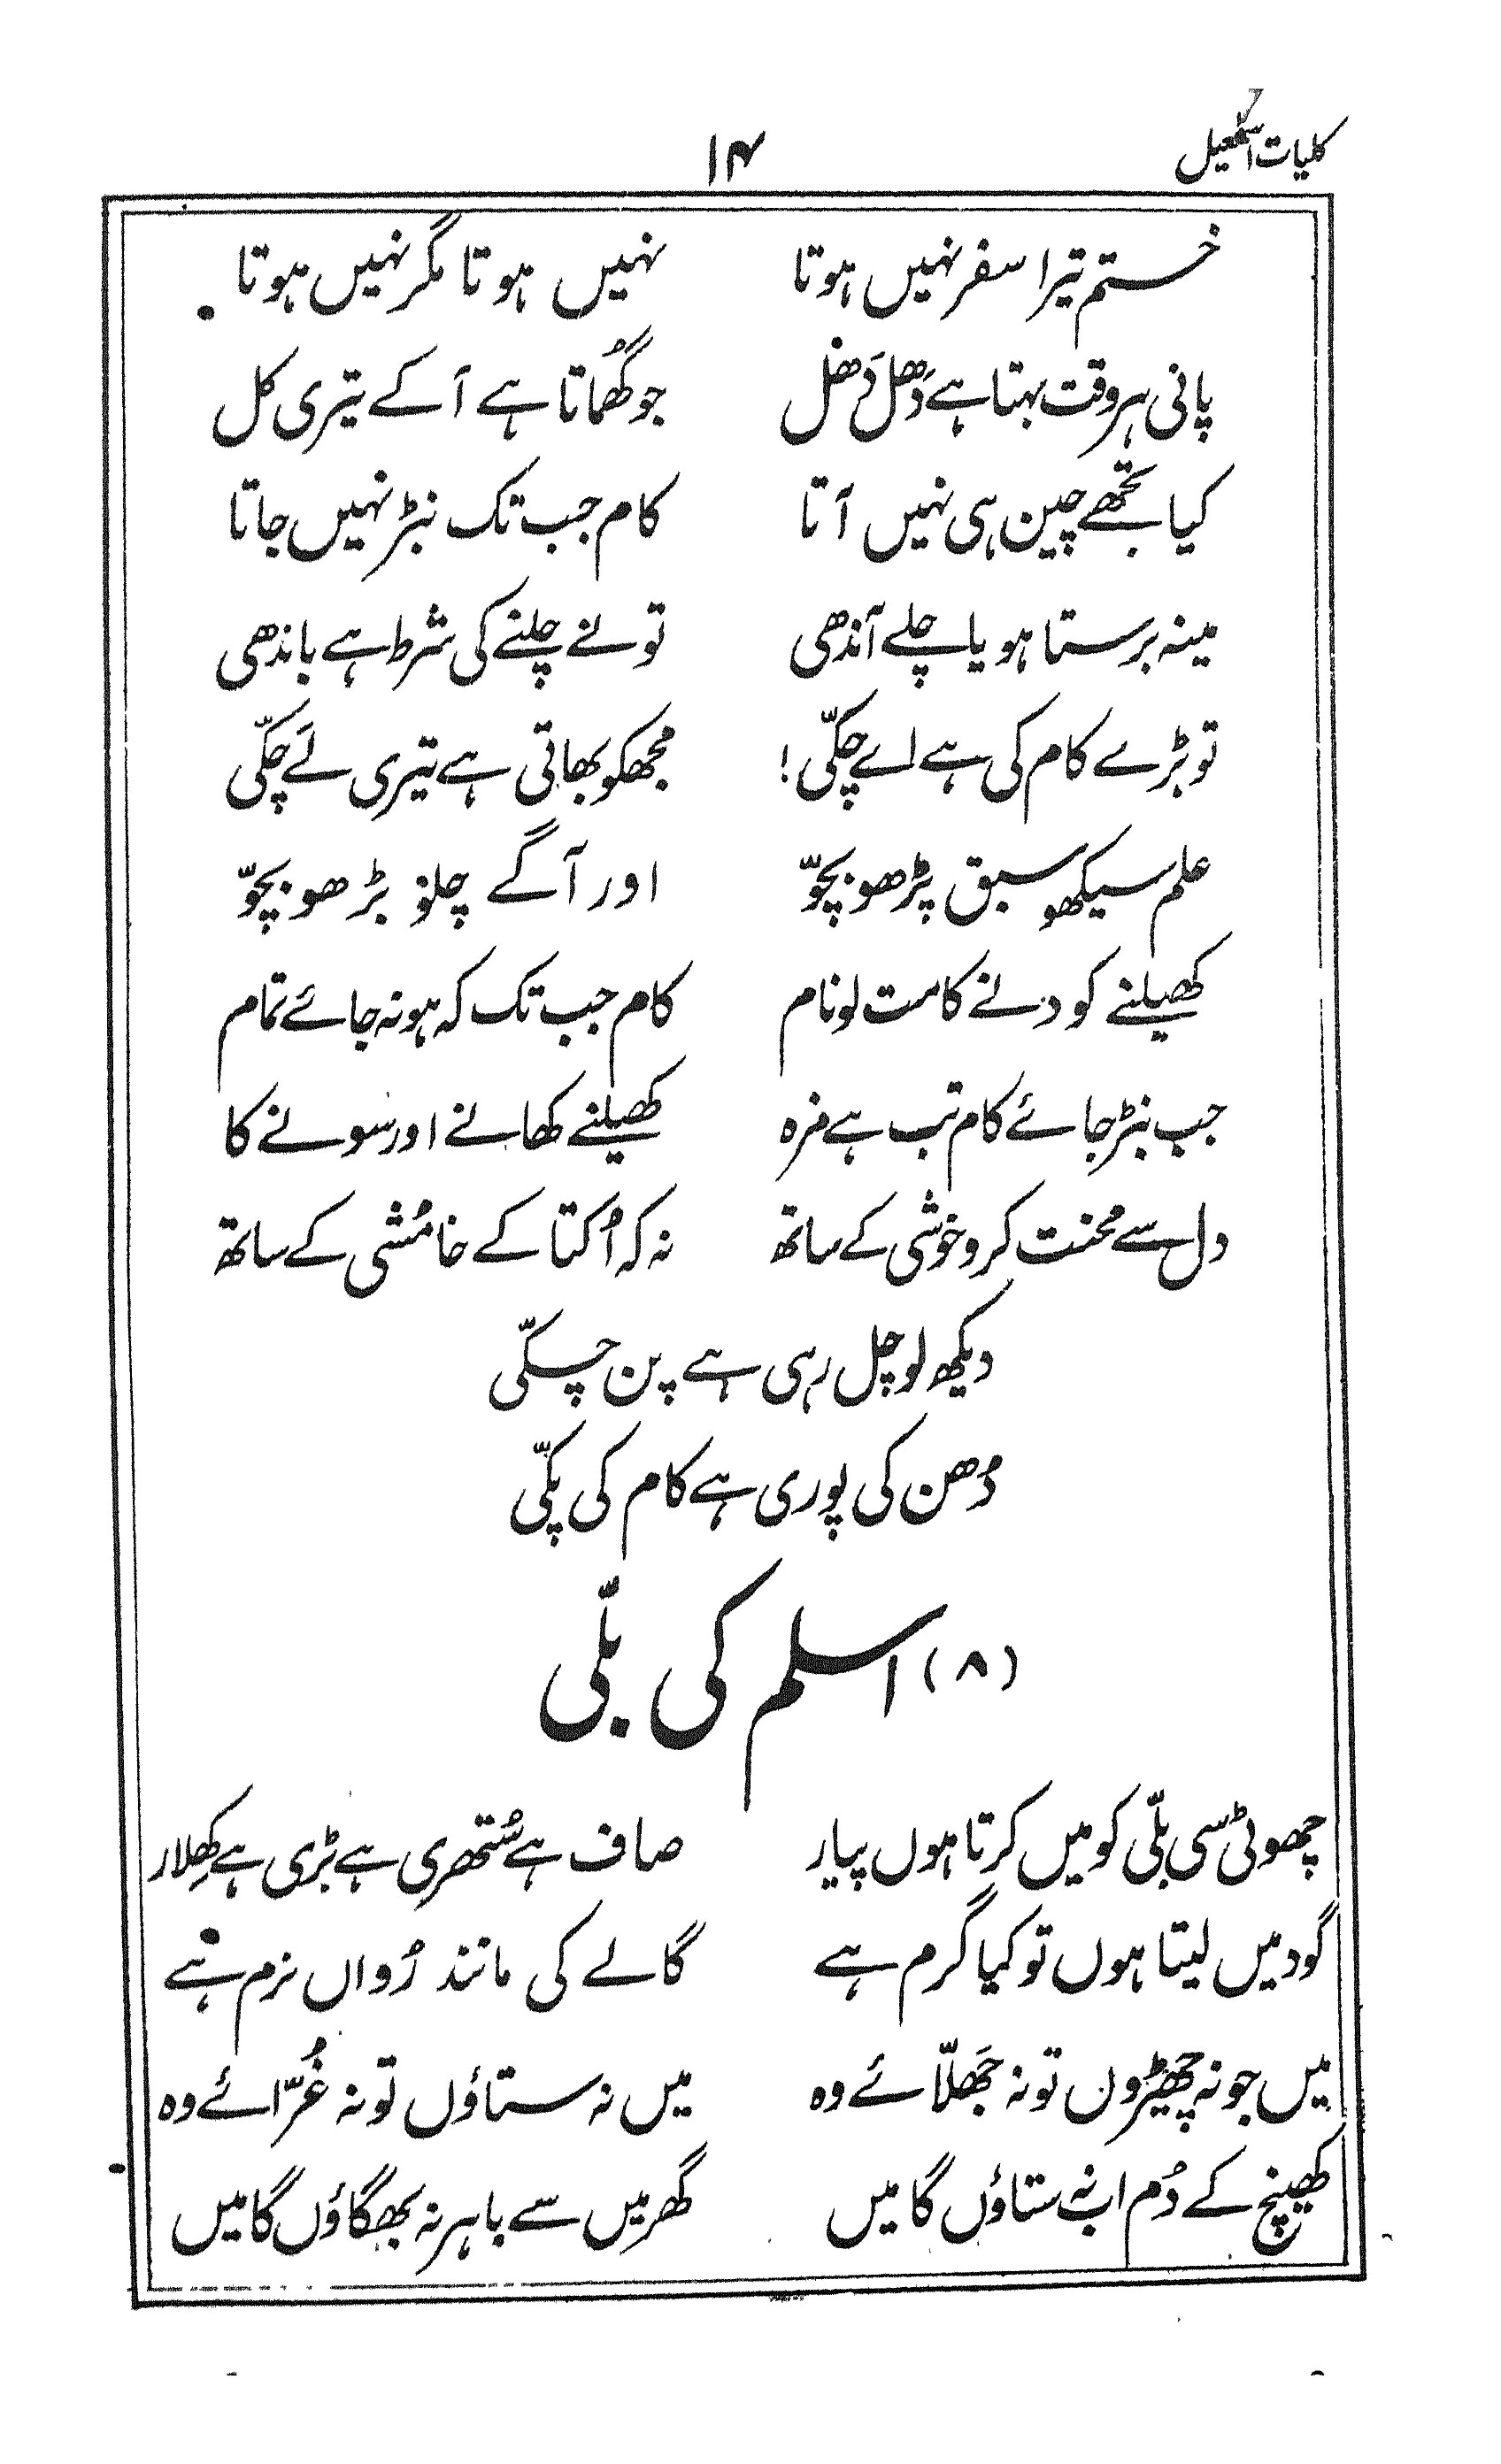 کلیات اسمٰعیل ۱۴
ختم تیرا سفر نہیں ہوتا نہیں ہوتا مگر نہیں ہوتا
پانی ہر وقت بہتا ہے دَھل دَھل جو گھُماتا ہے آ کے تیری کل
کیا تجھے چین ہی نہیں آتا کام جب تک نبڑ نہیں جاتا
مینہ برستا ہو یا چلے آندھی تو نے چلنے کی شرط ہے باندھی
تو بڑے کام کی ہے اے چکّی! مجھکو بھاتی ہے تیری لَے چکّی
علم سیکھو سبق پڑھو بچوّ اور آگے چلو بڑھو بچوّ
کھیلنے کودنے کا مت لو نام کام جب تک کہ ہو نہ جائے تمام
جب نبڑ جائے کام تب ہے مزہ کھیلنے کھانے اور سونے کا
دل سے محنت کرو خوشی کے ساتھ نہ کہ اُکتا کے خامُشی کے ساتھ
دیکھ لو چل رہی ہے پن چکّی
دُھن کی پوری ہے کام کی پکّی
(۸) اسلم کی بلّی
چھوٹی سی بلّی کو میں کرتا ہوں پیار صاف ہے سُتھری ہے بڑی ہے کھِلار
گود میں لیتا ہوں تو کیا گرم ہے گالے کی مانند رُواں نرم ہے
میں جو نہ چھیڑوں تو نہ جَھلّائے وہ میں نہ ستاؤں تو نہ غُرّائے وہ
کھینچ کے دُم اب نہ ستاؤں گا میں گھر میں سے باہر نہ بھگاؤں گا میں